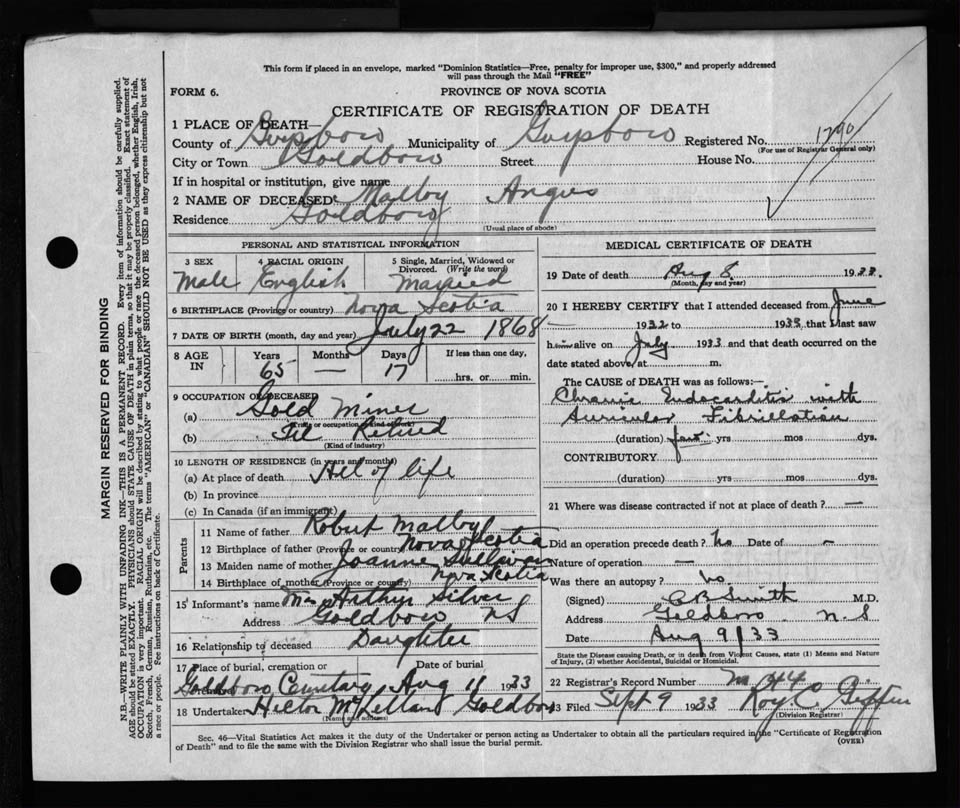 This form if placed in an envelope, marked "Dominion Statistics—Free, penalty for improper use, $300," and properly addressed
will pass through the Mail "FREE"
FORM 6.
PROVINCE OF NOVA SCOTIA
CERTIFICATE OF REGISTRATION OF DEATH
1 PLACE OF DEATH—
County of Guysboro Municipality of Guysboro Registered No. 1790
(For use of Registrar General only)
City or Town Goldboro Street House No.
If in hospital or institution, give name
2 NAME OF DECEASED Malby Angus
Residence Goldboro
(Usual place of abode)
PERSONAL AND STATISTICAL INFORMATION
3 SEX 4 RACIAL ORIGIN 5 Single, Married, Widowed or Divorced. (Write the word)
Male English Married
6 BIRTHPLACE (Province or country) Nova Scotia
7 DATE OF BIRTH (month, day and year) July 22 1868
8 AGE IN Years Months Days If less than one day,
65 — 17 hrs. or min.
9 OCCUPATION OF DECEASED
(a) Gold Miner
(Trade or occupation (kind of work)
(b) Retired
(Kind of industry)
10 LENGTH OF RESIDENCE (in years and months)
(a) At place of death All of life
(b) In province
(c) In Canada (if an immigrant)
Parents
11 Name of father Robert Malby
12 Birthplace of father (Province or country) Nova Scotia
13 Maiden name of mother Joanne Sullivan
14 Birthplace of mother (Province or country) Nova Scotia
15 Informant's name Mrs Arthur Silver
Address Goldboro NS
16 Relationship to deceased Daughter
17 Place of burial, cremation or Date of burial
Goldboro Cemetary Aug 11 1933
18 Undertaker Hilton McKelland Goldboro
(Name and address)
MEDICAL CERTIFICATE OF DEATH
19 Date of death Aug 8 1933.
(Month, day and year)
20 I HEREBY CERTIFY that I attended deceased from June
1932 to 1933 that I last saw
him alive on July 1933 and that death occurred on the
date stated above, at m.
The CAUSE OF DEATH was as follows:—
Chronic Endocarditis with
Auricular Fibrillation
(duration) yrs mos dys.
CONTRIBUTORY
(duration) yrs mos dys.
21 Where was disease contracted if not at place of death? —
Did an operation precede death? no Date of —
Nature of operation —
Was there an autopsy? no
(Signed) C B Smith M.D.
Address Goldboro N.S
Date Aug 9/33
State the Disease causing Death, or in death from Violent Causes, state (1) Means and Nature
of Injury, (2) whether Accidental, Suicidal or Homicidal.
22 Registrar's Record Number M 44
23 Filed Sept 9 1933 Roy C Giffin
(Division Registrar)
Sec. 46—Vital Statistics Act makes it the duty of the Undertaker or person acting as Undertaker to obtain all the particulars required in the "Certificate of Registration
of Death" and to file the same with the Division Registrar who shall issue the burial permit.
(OVER)
MARGIN RESERVED FOR BINDING
N.B.—WRITE PLAINLY WITH UNFADING INK—THIS IS A PERMANENT RECORD. Every item of information should be carefully supplied.
AGE should be stated EXACTLY. PHYSICIANS should STATE CAUSE OF DEATH in plain terms, so that it may be properly classified. Exact statement of
OCCUPATION is very important. RACIAL ORIGIN will be described by stating to what people or race the deceased person belonged, whether English, Irish,
Scotch, French, German, Russian, Ruthenian, etc. The terms "AMERICAN" or "CANADIAN" SHOULD NOT BE USED as they express citizenship but not
a race or people. See instructions on back of Certificate.